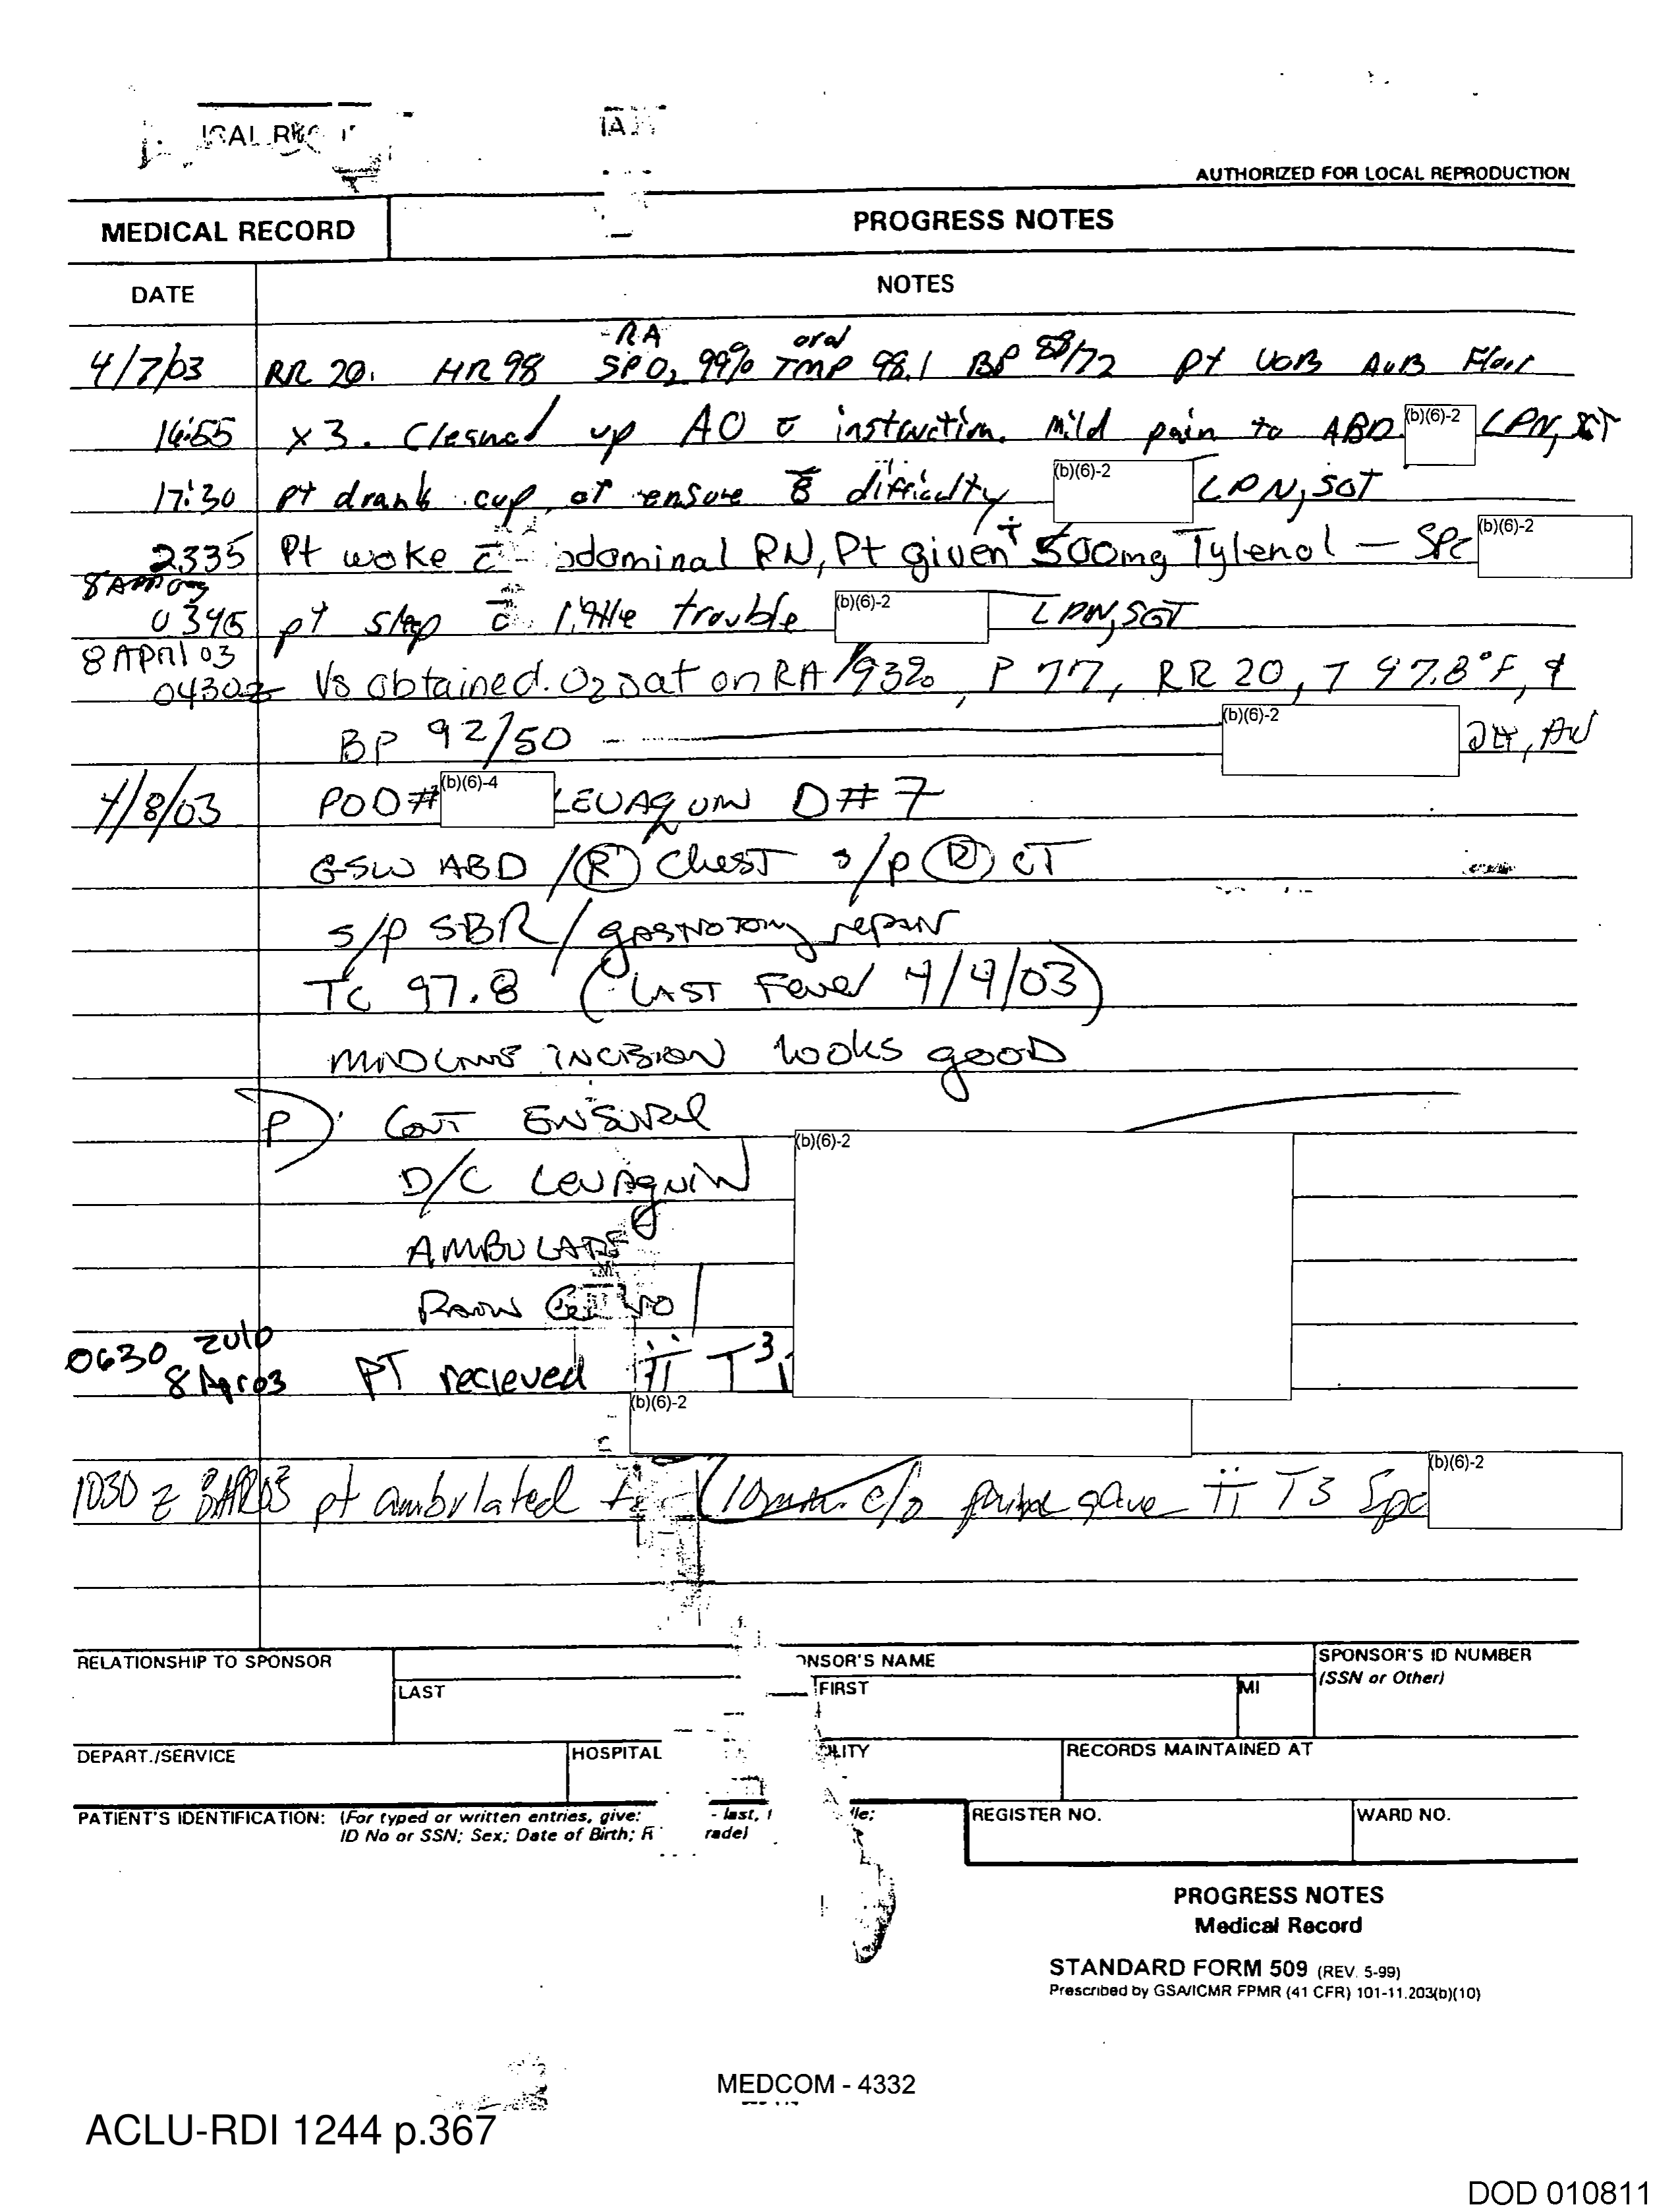 AUTHORIZED FOR LOCAL REPRODUCTION
MEDICAL RECORD
PROGRESS NOTES
DATE
NOTES
RA oral
4/7/03 RR 20. HR 98 SPO2 99% TMP 98.1 BP 88/72 pt
16:55 x 3. Cleaned up AO c̄ instruction. Mild pain to ABD. (b)(6)-2 LPN, SGT
17:30 pt drank cup of ensure s̄ difficulty (b)(6)-2 LPN, SGT
2335 Pt woke c̄ PN, Pt given † 500mg Tylenol — SPC (b)(6)-2
8 APR 03
0345 pt slep c̄ little trouble (b)(6)-2 LPN, SGT
8 APRIl 03
0430z Vs obtained. O2 sat on RA 93%, P 77, RR 20, T 97.8°F, &
BP 92/50 (b)(6)-2 2LT, AN
4/8/03 POD# (b)(6)-4 LEVAQUIN D# 7
GSW ABD / (R) Chest s/p (R) CT
s/p SBR / gastrotomy repair
Tc 97.8 (LAST Fever 4/4/03)
MIDLINE INCISION looks good
P): CONT ENSURE
(b)(6)-2
D/C LEVAQUIN
AMBULATE
0630 zulu
8 Apr 03 PT recieved ii T3
(b)(6)-2
1030 z 8APR03 pt ambulated 10min. c/o gave ii T3 Spc (b)(6)-2
RELATIONSHIP TO SPONSOR
SPONSOR'S ID NUMBER
(SSN or Other)
NAME
LAST
FIRST
MI
DEPART./SERVICE
HOSPITAL
RECORDS MAINTAINED AT
PATIENT'S IDENTIFICATION: (For typed or written entries, give: - last,
ID No or SSN; Sex; Date of Birth;
REGISTER NO.
WARD NO.
PROGRESS NOTES
Medical Record
STANDARD FORM 509 (REV. 5-99)
Prescribed by GSA/ICMR FPMR (41 CFR) 101-11.203(b)(10)
MEDCOM - 4332
ACLU-RDI 1244 p.367
DOD 010811